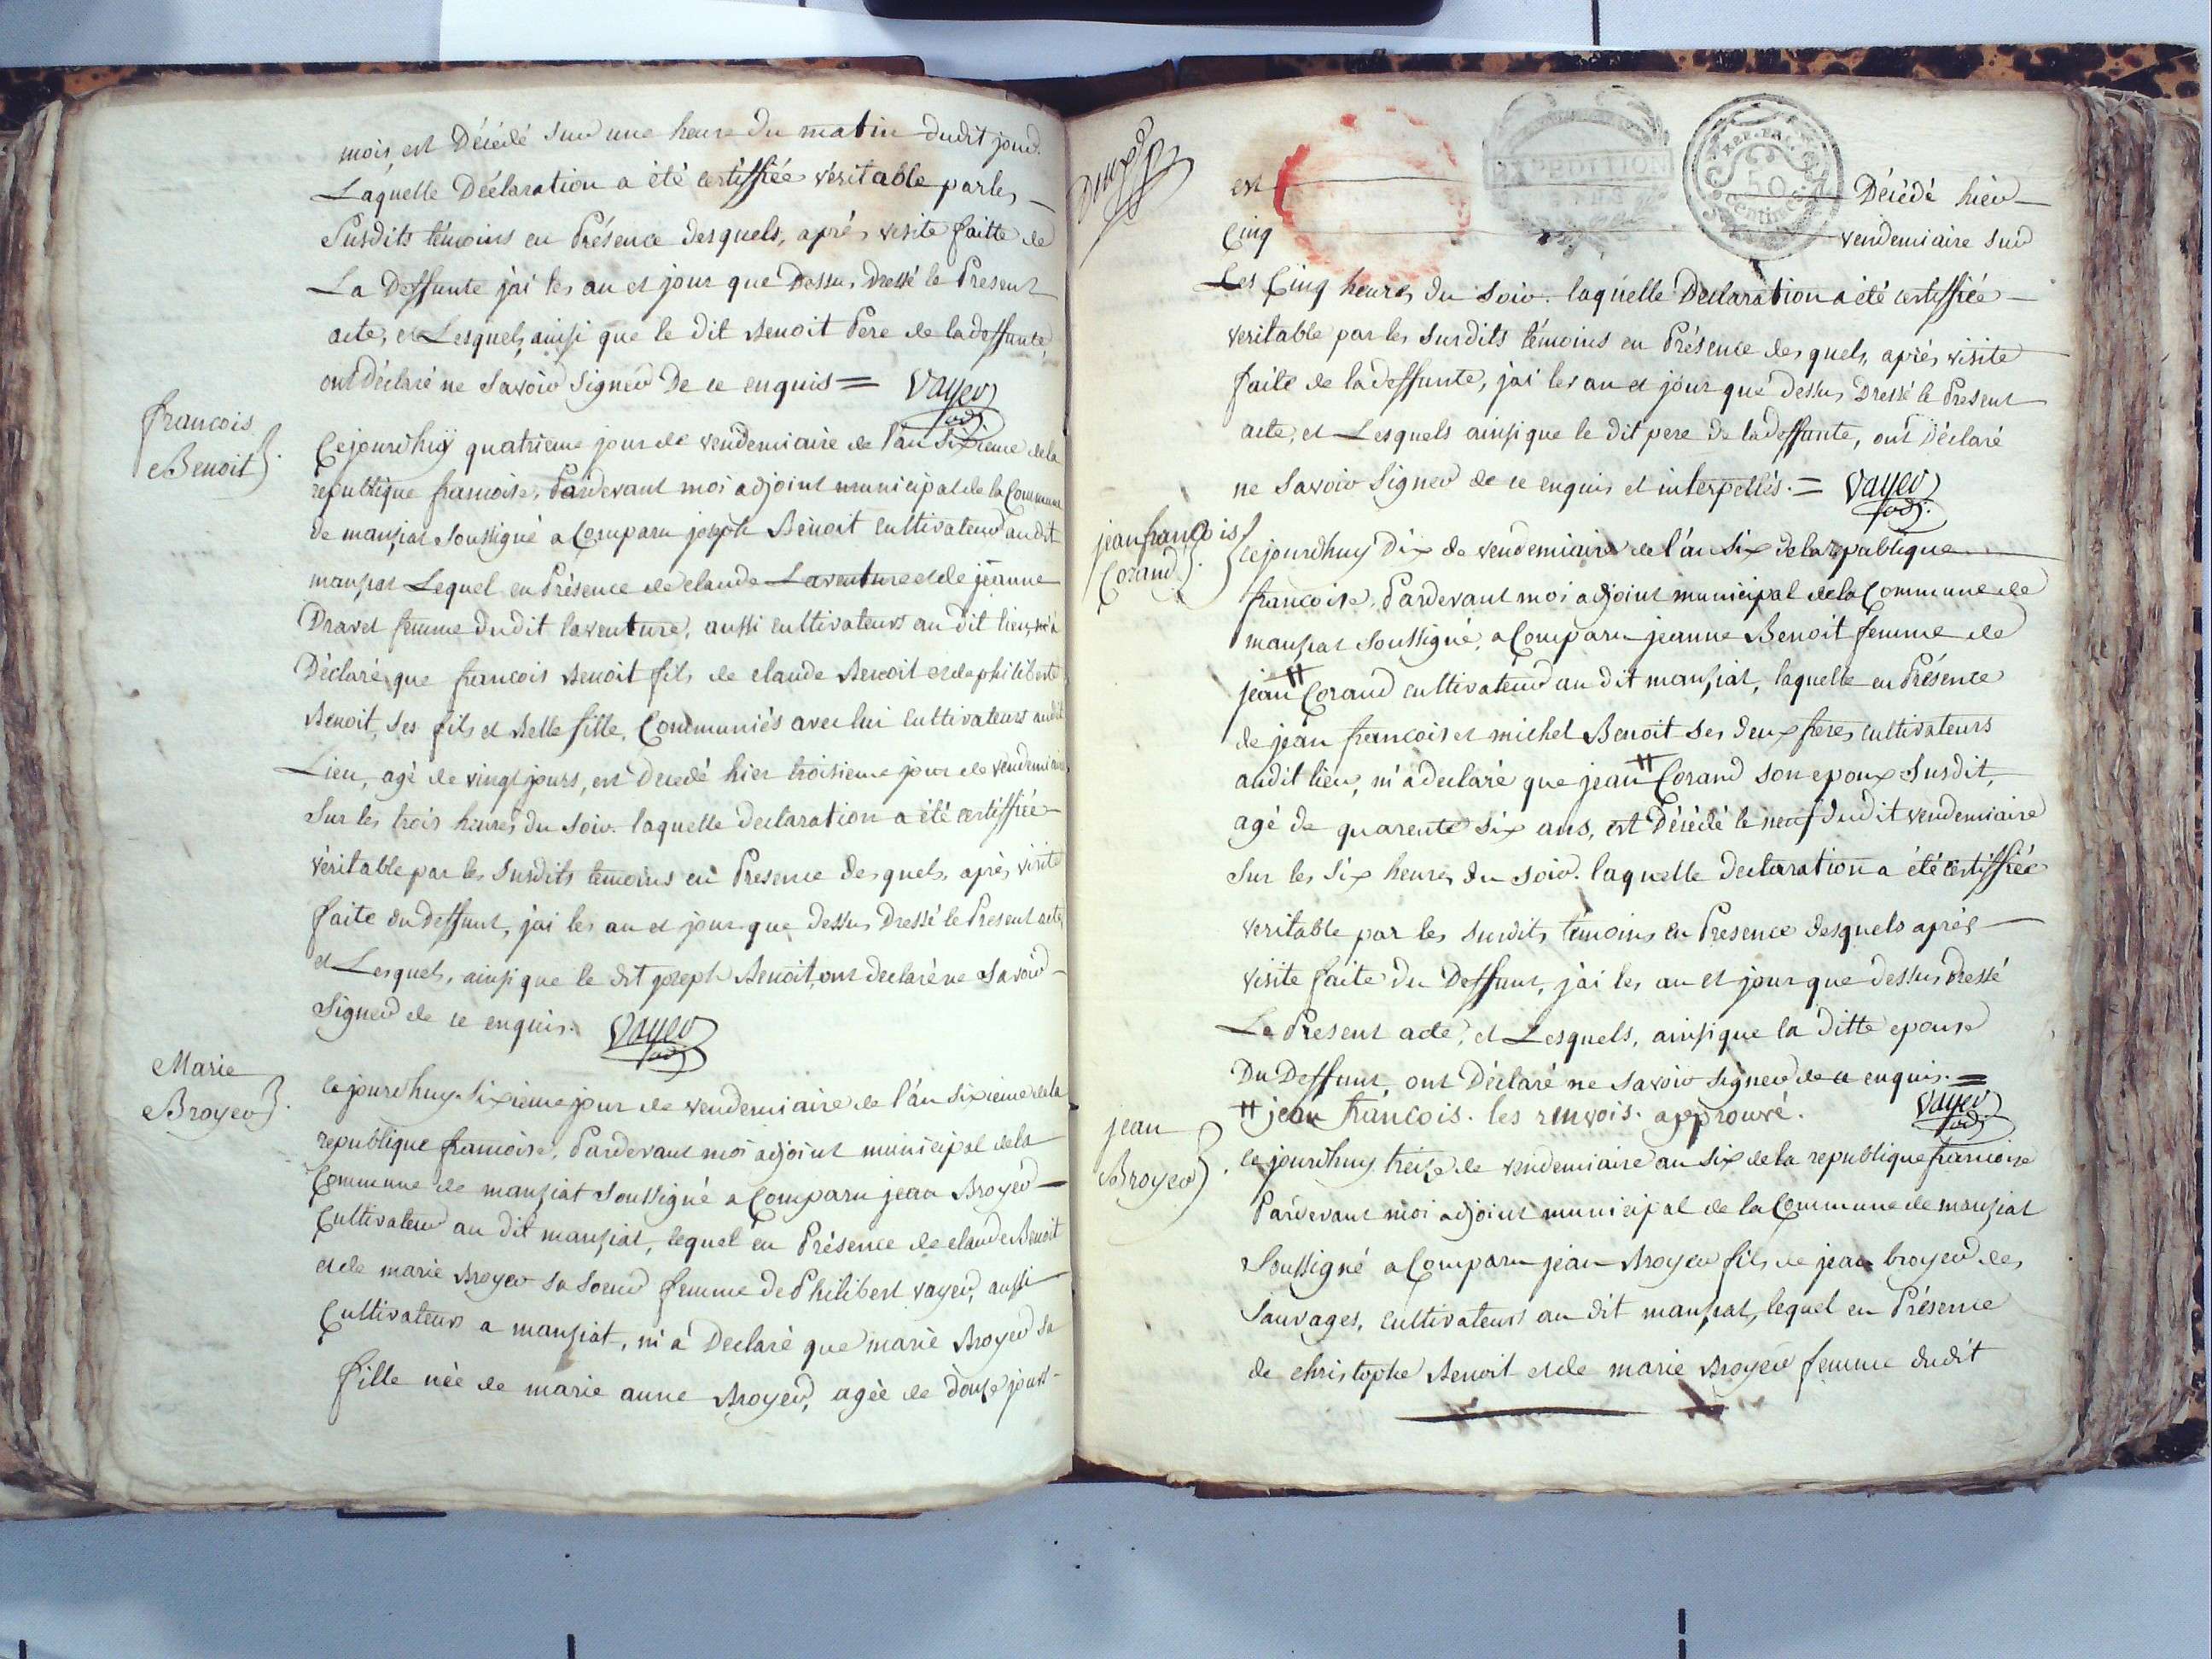 mois, est Décédé sur une heure du matin dudit jour.
Laquelle Déclaration a été certiffiée véritable par les
Susdits témoins en Présence desquels, après visite faitte de
La Deffunte j'ai les an et jour que Dessus Dressé le Présent
acte, et Lesquels, ainsi que le dit Benoit Pere de la deffunte,
ont Déclaré ne Savoir Signer De ce enquis = Vayer
adj.
francois
Benoit
Cejourdhuÿ quatrieme jour de vendemiaire de l'an Sixieme de la
republique francoise, Pardevant moi adjoint municipal de la Commune
de manziat Soussigné a Comparu joseph Benoit Cultivateur au dit
manziat Lequel en Présence de claude Laventure et de jeanne
Dravet femme dudit laventure, aussi cultivateurs au dit lieu, m'a
Déclaré que francois Benoit fils de claude Benoit et de philiberte
Benoit, Ses fils et belle fille, Communiés avec lui Cultivateurs audit
Lieu, agé de vingt jours, est Decedé hier troisieme jour de vendemiaire
Sur les trois heures du soir. laquelle declaration a été certiffiée
véritable par les Susdits temoins en Présence desquels, après visite
faite du deffunt, j'ai les an et jour que dessus Dressé le Présent acte,
et Lesquels, ainsi que le dit joseph Benoit, ont declaré ne Savoir
Signer de ce enquis. Vayer
adj.
Marie
Broyer
Cejourdhuy Sixieme jour de vendemiaire de l'an Sixieme de la
republique francoise, Pardevant moi adjoint municipal de la
Commune de manziat Soussigné a Comparu jean Broyer
Cultivateur au dit manziat, lequel en Présence de claude Benoit
et de marie Broyer sa Soeur femme de Philibert vayer, aussi
Cultivateurs a manziat, m'a Declaré que marie Broyer sa
fille née de marie anne Broyer, agée de douze jours
est Décédé hier
Cinq vendemiaire sur
EXPEDITION
REP. FRA.
50
centimes
Les Cinq heures du Soir. laquelle Declaration a été certiffiée
veritable par les Susdits témoins en Présence des quels, après visite
faite de la deffunte, j'ai les an et jour que dessus Dressé le Présent
acte, et Lesquels ainsi que le dit pere de la deffunte, ont Déclaré
ne Savoir Signer de ce enquis et interpellés. = Vayer
adj.
jean francois
Corand
Cejourdhuy Dix de vendemiaire de l'an Six de la republique
francoise, Pardevant moi adjoint municipal de la Commune de
manziat Soussigné, a Comparu jeanne Benoit femme de
jean # Corand cultivateur au dit manziat, laquelle en Présence
de jean francois et michel Benoit Ses deux freres, cultivateurs
audit lieu, m'a declaré que jean # Corand son epoux Susdit,
agé de quarente six ans, est Décédé le neuf dudit vendemiaire
Sur les Six heures du soir. laquelle declaration a été certiffiée
veritable par les Susdits, témoins en Présence desquels après
visite faite du Deffunt, j'ai les an et jour que dessus Dressé
Le Présent acte, et Lesquels, ainsi que la ditte epouse
Du Deffunt, ont Déclaré ne Savoir Signer de ce enquis. =
# jean francois. les renvois. approuvé. Vayer
adj.
jean
Broyer
Cejourdhuy treize de vendemiaire an six de la republique francoise
Pardevant moi adjoint municipal de la Commune de manziat
Soussigné a Comparu jean Broyer fils de jean broyer des
Sauvages, cultivateurs au dit manziat, lequel en Présence
de christophe Benoit et de marie Broyer femme dudit